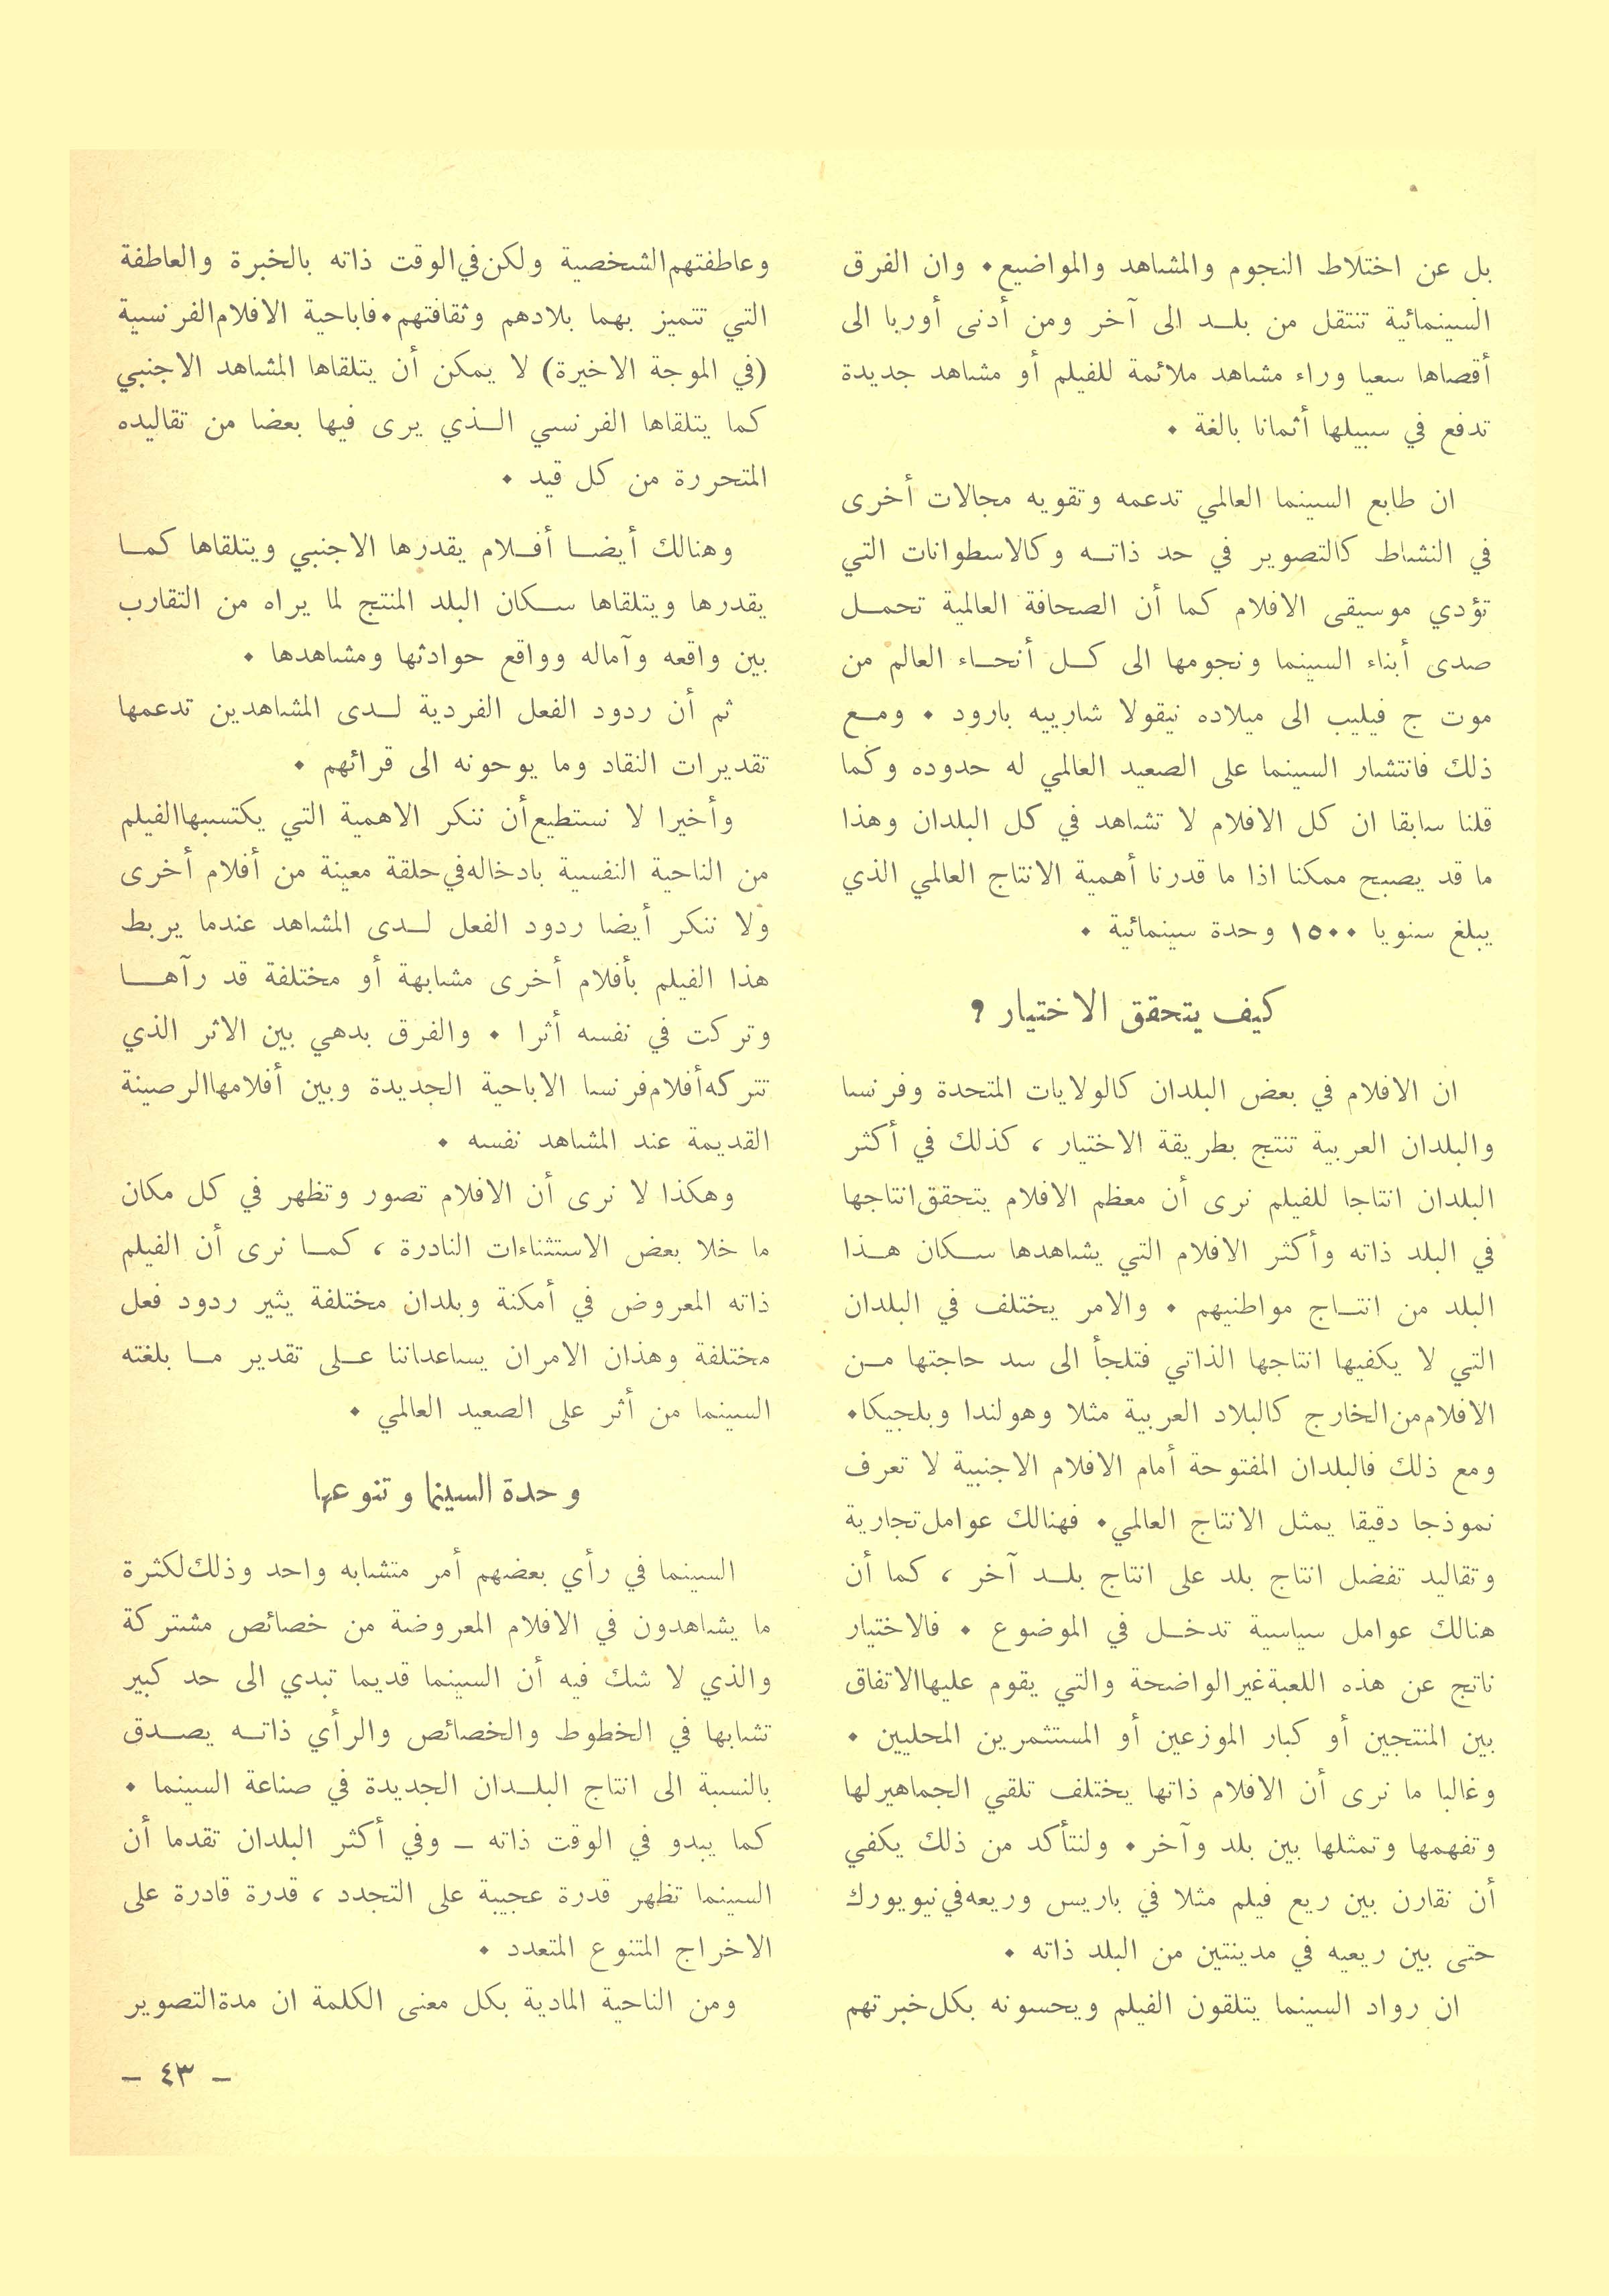 بل عن اختلاط النجوم والمشاهد والمواضيع٠ وان الفرق
السينمائية تنتقل من بلــد الى آخر ومن أدنى أوربا الى
أقصاها سعيا وراء مشاهد ملائمة للفيلم أو مشاهد جديدة
تدفع في سبيلها أثمانا بالغة ٠
ان طابع السينما العالمي تدعمه وتقويه مجالات أخرى
في النشاط كالتصوير في حد ذاتــه وكالاسطوانات التي
تؤدي موسيقى الافلام كما أن الصحافة العالمية تحمــل
صدى أبناء السينما ونجومها الى كــل أنحــاء العالم من
موت ج فيليب الى ميلاده نيقولا شارييه بارود ٠ ومــع
ذلك فانتشار السينما على الصعيد العالمي له حدوده وكما
قلنا سابقا ان كل الافلام لا تشاهد في كل البلدان وهذا
ما قد يصبح ممكنا اذا ما قدرنا أهمية الانتاج العالمي الذي
يبلغ سنويا ١٥٠٠ وحدة سينمائية ٠
كيف يتحقق الاختيار ؟
ان الافلام في بعض البلدان كالولايات المتحدة وفرنسا
والبلدان العربية تنتج بطريقة الاختيار ، كذلك في أكثر
البلدان انتاجا للفيلم نرى أن معظم الافلام يتحقق انتاجها
في البلد ذاته وأكثر الافلام التي يشاهدها ســكان هــذا
البلد من انتــاج مواطنيهم ٠ والامر يختلف في البلدان
التي لا يكفيها انتاجها الذاتي فتلجأ الى سد حاجتها مــن
الافلام من الخارج كالبلاد العربية مثلا وهولندا وبلجيكا٠
ومع ذلك فالبلدان المفتوحة أمام الافلام الاجنبية لا تعرف
نموذجا دقيقا يمثل الانتاج العالمي٠ فهنالك عوامل تجارية
وتقاليد تفضل انتاج بلد على انتاج بلــد آخر ، كما أن
هنالك عوامل سياسية تدخــل في الموضوع ٠ فالاختيار
ناتج عن هذه اللعبة غير الواضحة والتي يقوم عليها الاتفاق
بين المنتجين أو كبار الموزعين أو المستثمرين المحليين ٠
وغالبا ما نرى أن الافلام ذاتها يختلف تلقي الجماهير لها
وتفهمها وتمثلها بين بلد وآخر٠ ولنتأكد من ذلك يكفي
أن نقارن بين ريع فيلم مثلا في باريس وريعه في نيويورك
حتى بين ريعيه في مدينتين من البلد ذاته ٠
ان رواد السينما يتلقون الفيلم ويحسونه بكل خبرتهم
وعاطفتهم الشخصية ولكن في الوقت ذاته بالخبرة والعاطفة
التي تتميز بهما بلادهم وثقافتهم٠ فاباحية الافلام الفرنسية
(في الموجة الاخيرة) لا يمكن أن يتلقاها المشاهد الاجنبي
كما يتلقاها الفرنسي الــذي يرى فيها بعضا من تقاليده
المتحررة من كل قيد ٠
وهنالك أيضــا أفــلام يقدرها الاجنبي ويتلقاها كمــا
يقدرها ويتلقاها ســكان البلد المنتج لما يراه من التقارب
بين واقعه وآماله وواقع حوادثها ومشاهدها ٠
ثم أن ردود الفعل الفردية لــدى المشاهدين تدعمها
تقديرات النقاد وما يوحونه الى قرائهم ٠
وأخيرا لا نستطيع أن ننكر الاهمية التي يكتسبها الفيلم
من الناحية النفسية بادخاله في حلقة معينة من أفلام أخرى
ولا ننكر أيضا ردود الفعل لــدى المشاهد عندما يربط
هذا الفيلم بأفلام أخرى مشابهة أو مختلفة قد رآهــا
وتركت في نفسه أثرا ٠ والفرق بدهي بين الاثر الذي
تتركه أفلام فرنسا الاباحية الجديدة وبين أفلامها الرصينة
القديمة عند المشاهد نفسه ٠
وهكذا لا نرى أن الافلام تصور وتظهر في كل مكان
ما خلا بعض الاستثناءات النادرة ، كمــا نرى أن الفيلم
ذاته المعروض في أمكنة وبلدان مختلفة يثير ردود فعل
مختلفة وهذان الامران يساعداننا عــلى تقدير مــا بلغته
السينما من أثر على الصعيد العالمي ٠
وحدة السينما وتنوعها
السينما في رأي بعضهم أمر متشابه واحد وذلك لكثرة
ما يشاهدون في الافلام المعروضة من خصائص مشتركة
والذي لا شك فيه أن السينما قديما تبدي الى حد كبير
تشابها في الخطوط والخصائص والرأي ذاتــه يصــدق
بالنسبة الى انتاج البلــدان الجديدة في صناعة السينما ٠
كما يبدو في الوقت ذاته ـ وفي أكثر البلدان تقدما أن
السينما تظهر قدرة عجيبة على التجدد ، قدرة قادرة على
الاخراج المتنوع المتعدد ٠
ومن الناحية المادية بكل معنى الكلمة ان مدة التصوير
ـ ٤٣ ـ